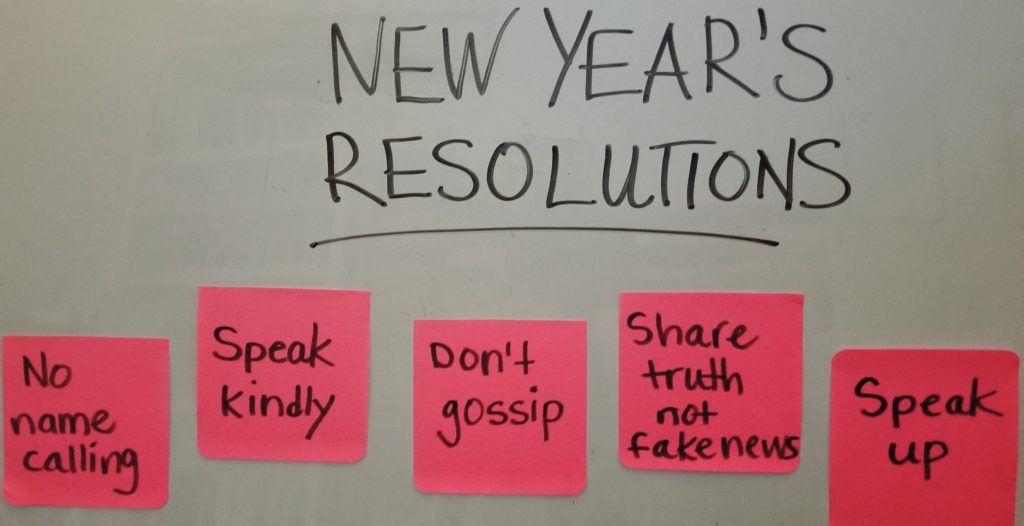 NEW YEAR'S
RESOLUTIONS
No
name
calling
Speak
kindly
Don't
gossip
Share
truth
not
fakenews
Speak
up